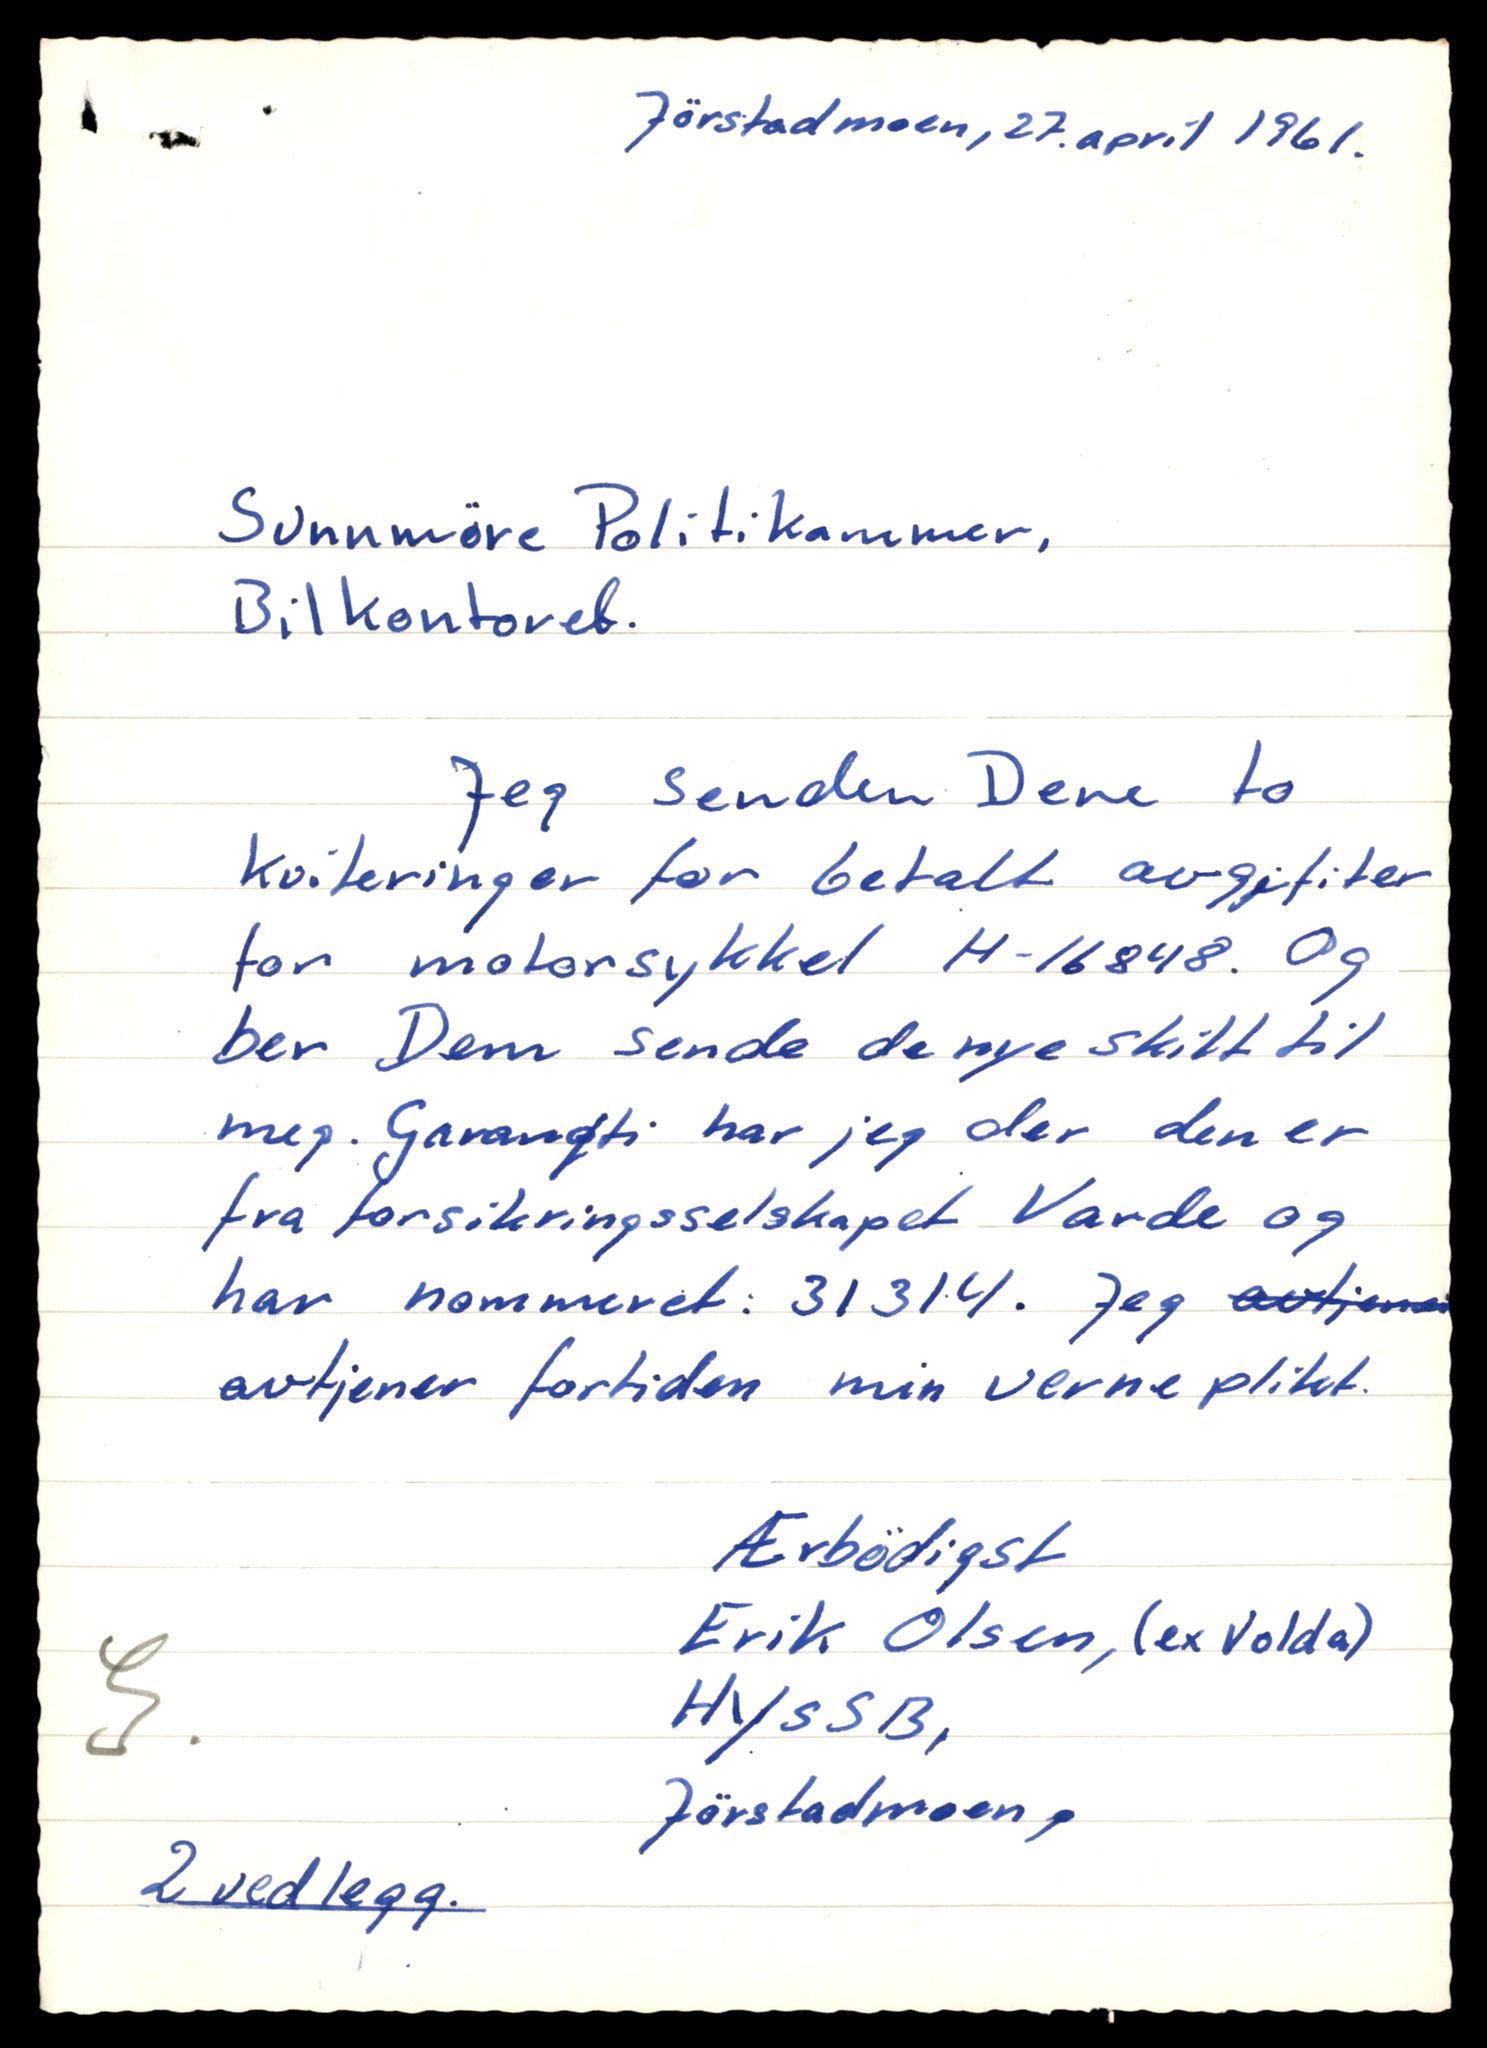 Jörstadmoen, 27. april 1961.
Sunnmöre Politikammer,
Bilkontoret.
Jeg sender Dere to
kviteringer for betalt avgifter
for motorsykkel H-16848. Og
ber Dem sende de nye skilt til
meg. Garanti har jeg der den er
fra forsikringsselskapet Varde og
har nommeret: 31314. Jeg avtjener
avtjener fortiden min verneplikt.
Ærbödigst
Erik Olsen, (ex Volda)
HVSSB,
Jörstadmoen,
2 vedlegg.